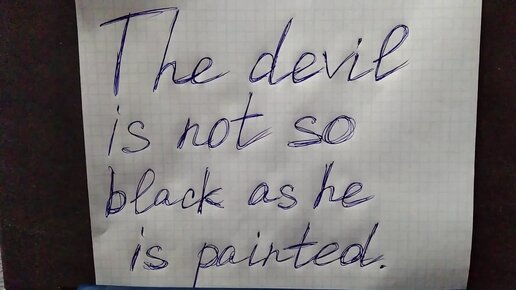 The devil
is not so
black as he
is painted.